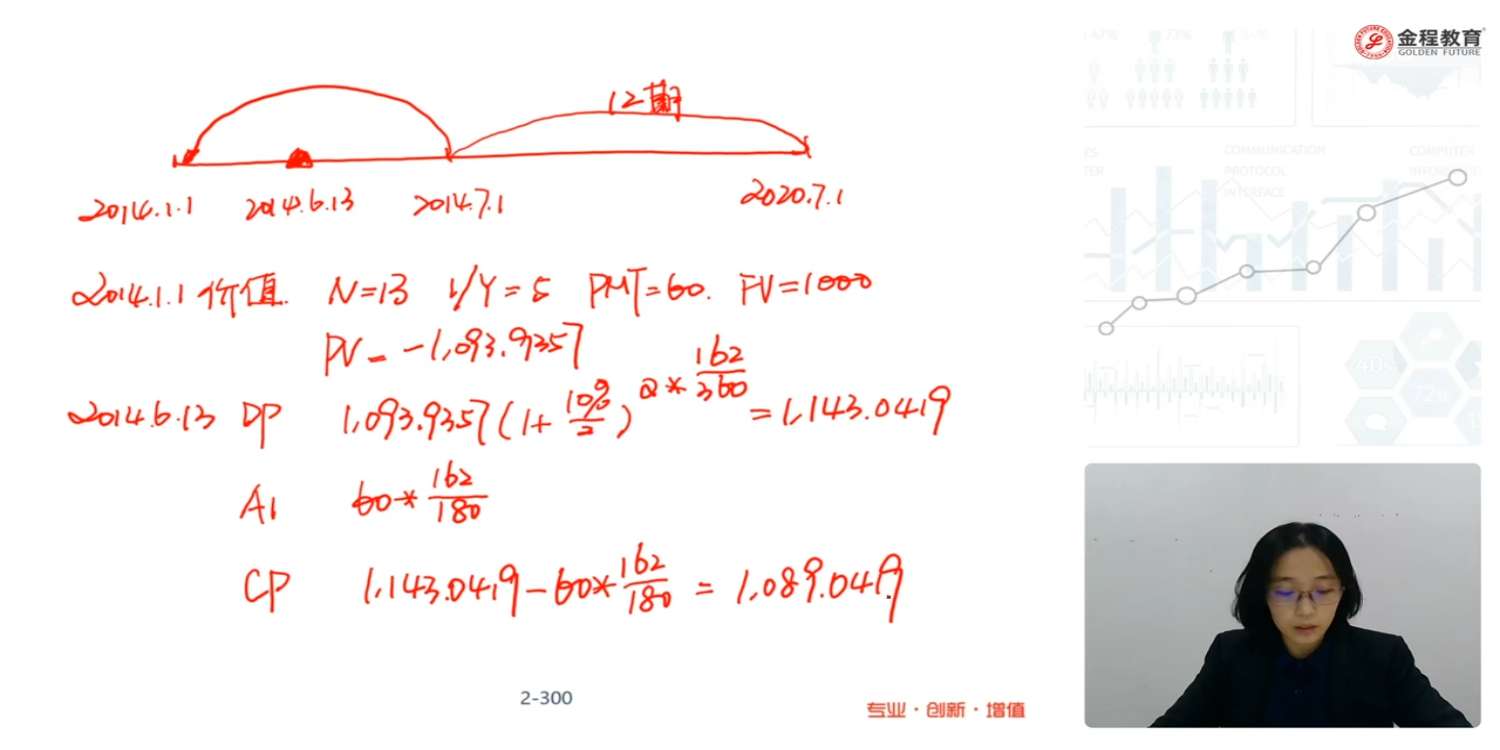 金程教育
GOLDEN FUTURE
12期
2014.1.1 2014.6.13 2014.7.1 2020.7.1
2014.1.1 价值 N=13 I/Y=5 PMT=60. FV=1000
PV=-1,093.9357
2014.6.13 DP 1,093.9357(1+10%/2)^2*162/360=1,143.0419
AI 60*162/180
CP 1,143.0419-60*162/180=1,089.0419
COMMUNICATION
PROTOCOL
INTERFACE
COMPUTER
2-300
专业·创新·增值